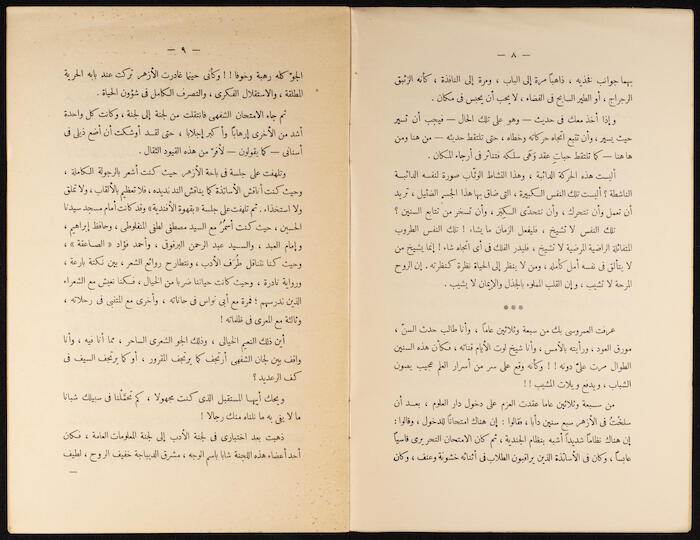 — ٨ —
بهما جوانب فخذيه ، ذاهباً مرة إلى الباب ، ومرة إلى النافذة ، كأنه الزئبق
الرجراج ، أو الطير السابح فى الفضاء ، لا يحب أن يحبس فى مكان .
و إذا أخذ معك فى حديث — وهو على تلك الحال — فيجب أن تسير
حيث يسير ، وأن تتبع اتجاه حركاته وخطاه ، حتى تلتقط حديثه — من هنا ومن
ها هنا — كما تلتقط حبات عقد وَهَى سلكه فتناثر فى أرجاء المكان .
أليست هذه الحركة الدائبة ، وهذا النشاط الوثّاب صورة لنفسه الدائبة
الناشطة ؟ أليست تلك النفس الكبيرة ، التى ضاق بها هذا الجسم الضئيل ، تريد
أن تعمل وأن تتحرك ، وأن تتحدّى الكبَر ، وأن تسخر من تتابع السنين ؟
تلك النفس لا تشيخ ، فليفعل الزمان ما يشاء ! تلك النفس الطروب
المتفائلة الراضية المرضية لا تشيخ ، فليدر الفلك فى أى اتجاه شاء ! إنما يشيخ من
لا يتألق فى نفسه أمل كأمله ، ومن لا ينظر إلى الحياة نظرة كنظرته . إن الروح
المرحة لا تشيب ، و إن القلب المملوء بالجذل والإيمان لا يشيب .
***
عرفت العمروسى بك من سبعة وثلاثين عاماً ، وأنا طالب حدث السنّ ،
مورق العود ، ورأيته بالأمس ، وأنا شيخ لوت الأيام قناته ، فكأن هذه السنين
الطوال مرت علىّ دونه !! وكأنه وقع على سر من أسرار العلم عجيب يصون
الشباب ، ويدفع ويلات المشيب !!
من سبعة وثلاثين عاما عقدت العزم على دخول دار العلوم ، بعد أن
سلختُ فى الأزهر سبع سنين دأبا ، فقالوا : إن هناك امتحاناً للدخول ، وقالوا :
إن هناك نظاماً شديداً أشبه بنظام الجندية ، ثم كان الامتحان التحريرى قاسياً
عابساً ، وكان فى الأساتذة الذين يراقبون الطلاب فى أثنائه خشونة وعنف ، وكان
— ٩ —
الجوّ كله رهبة وخوفا !! وكأنى حينما غادرت الأزهر تركت عند بابه الحرية
المطلقة ، والاستقلال الفكرى ، والتصرف الكامل فى شؤون الحياة .
ثم جاء الامتحان الشفهى فانتقلت من لجنة إلى لجنة ، وكانت كل واحدة
أشد من الأخرى إرهاباً وأكبر إجلابا ، حتى لقد أوشكت أن أضع ذيلى فى
أسنانى — كما يقولون — لأفرّ من هذه القيود الثقال .
وتلهفت على جلسة فى باحة الأزهر حيث كنت أشعر بالرجولة الكاملة ،
وحيث كنت أناقش الأستاذ كما يناقش الند نديده ، فلا تعظيم بالألقاب ، ولا تملق
ولا استخذاء . ثم تلهفت على جلسة «بقهوة الأفندية» وقد كانت أمام مسجد سيدنا
الحسين ، حيث كنت أسمُر مع السيد مصطفى لطفى المنفلوطى ، وحافظ إبراهيم ،
و إمام العبد ، والسيد عبد الرحمن البرقوقى ، وأحمد فؤاد « الصاعقة » ،
وحيث كنا نتناقل طُرَف الأدب ، ونتطارح روائع الشعر ، بين نكتة بارعة ،
ورواية نادرة ، وحيث كانت حياتنا ضربا من الخيال ، فكنا نعيش مع الشعراء
الذين ندرسهم ؛ فمرة مع أبى نواس فى حاناته ، وأخرى مع المتنبى فى رحلاته ،
وثالثة مع المعرى فى ظلماته !
أين ذلك النعيم الخيالى ، وذلك الجو الشعرى الساحر ، مما أنا فيه ، وأنا
واقف بين لجان الشفهى أرتجف كما يرتجف المقرور ، أو كما يرتجف السيف فى
كف الرعديد ؟
ويحك أيها المستقبل الذى كنت مجهولا ، كم تحمّلنا فى سبيلك شبانا
ما لا يفى به ما نلناه منك رجالا !
ذهبت بعد اختبارى فى لجنة الأدب إلى لجنة المعلومات العامة ، فكان
أحد أعضاء هذه اللجنة شابا باسم الوجه ، مشرق الديباجة خفيف الروح ، لطيف